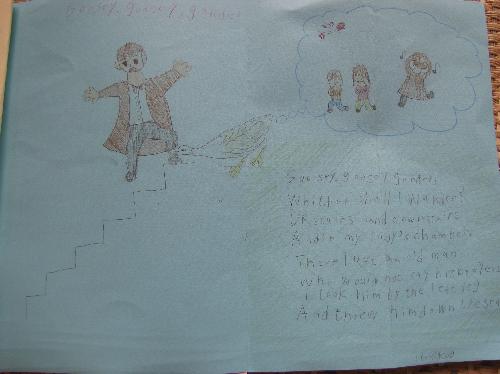 Goosey, goosey, gander
Goosey, goosey gander,
Whither shall I wander?
Upstairs and downstairs
And in my lady's chamber.
There I met an old man
Who would not say his prayers
I took him by the left leg
And threw him down the stairs